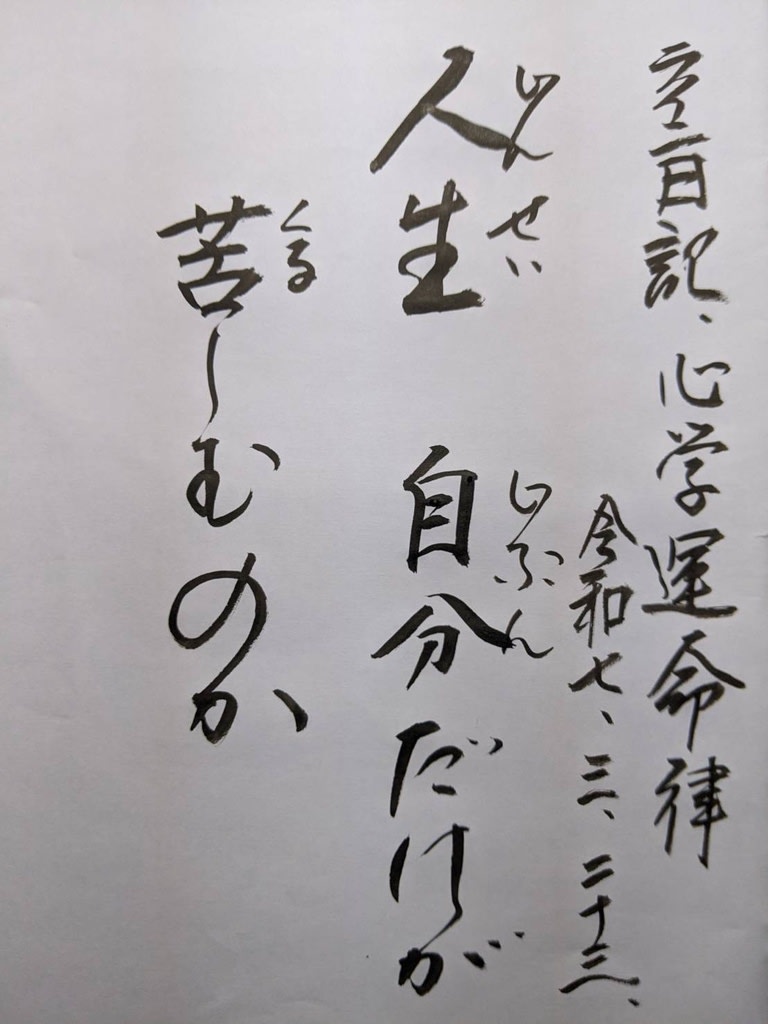 日記、心学運命律
令和七、三、二十三、
じんせい じぶん
人生 自分だけが
くる
苦しむのか